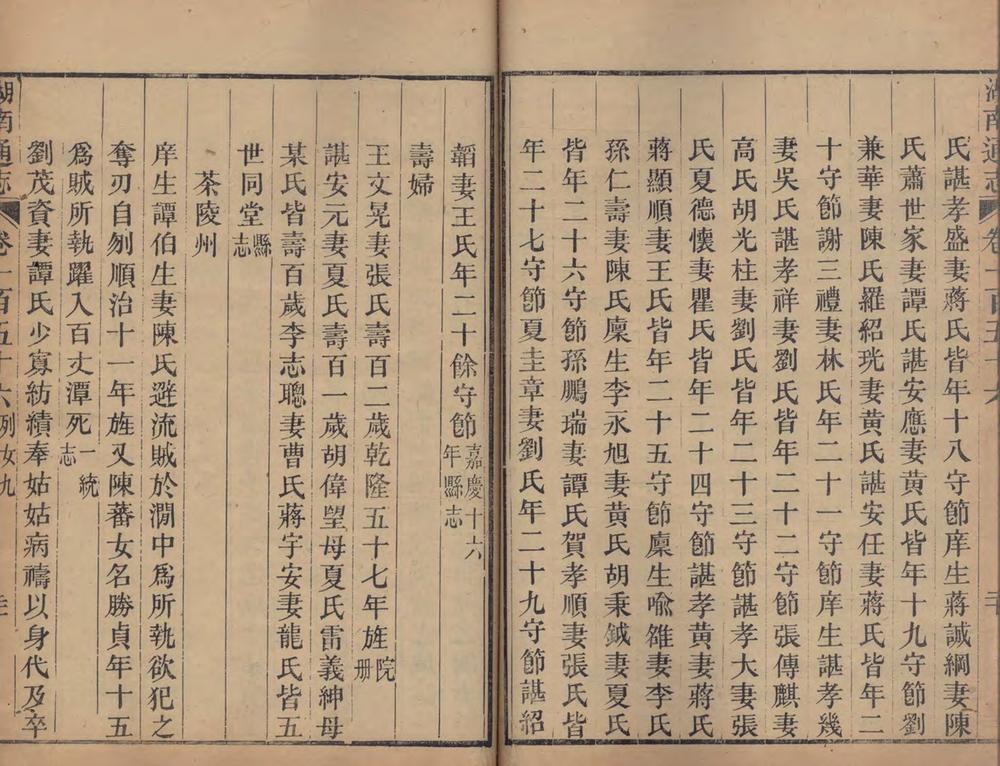 湖南通志 卷一百五十六
氏諶孝盛妻蔣氏皆年十八守節庠生蔣誠綱妻陳
氏蕭世家妻譚氏諶安應妻黃氏皆年十九守節劉
兼華妻陳氏羅紹珖妻黃氏諶安任妻蔣氏皆年二
十守節謝三禮妻林氏年二十一守節庠生諶孝幾
妻吳氏諶孝祥妻劉氏皆年二十二守節張傳麒妻
高氏胡光柱妻劉氏皆年二十三守節諶孝大妻張
氏夏德懷妻瞿氏皆年二十四守節諶孝黃妻蔣氏
蔣顯順妻王氏皆年二十五守節廩生喻雒妻李氏
孫仁壽妻陳氏廩生李永旭妻黃氏胡秉鉞妻夏氏
皆年二十六守節孫鵬瑞妻譚氏賀孝順妻張氏皆
年二十七守節夏圭章妻劉氏年二十九守節諶紹
韜妻王氏年二十餘守節嘉慶十六年縣志
壽婦
王文晃妻張氏壽百二歲乾隆五十七年旌院册
諶安元妻夏氏壽百一歲胡偉望母夏氏雷義紳母
某氏皆壽百歲李志聰妻曹氏蔣宇安妻龍氏皆五
世同堂縣志
茶陵州
庠生譚伯生妻陳氏避流賊於澗中爲所執欲犯之
奪刃自刎順治十一年旌又陳蕃女名勝貞年十五
爲賊所執躍入百丈潭死一統志
劉茂資妻譚氏少寡紡績奉姑姑病禱以身代及卒
湖南通志 卷一百五十六 列女九